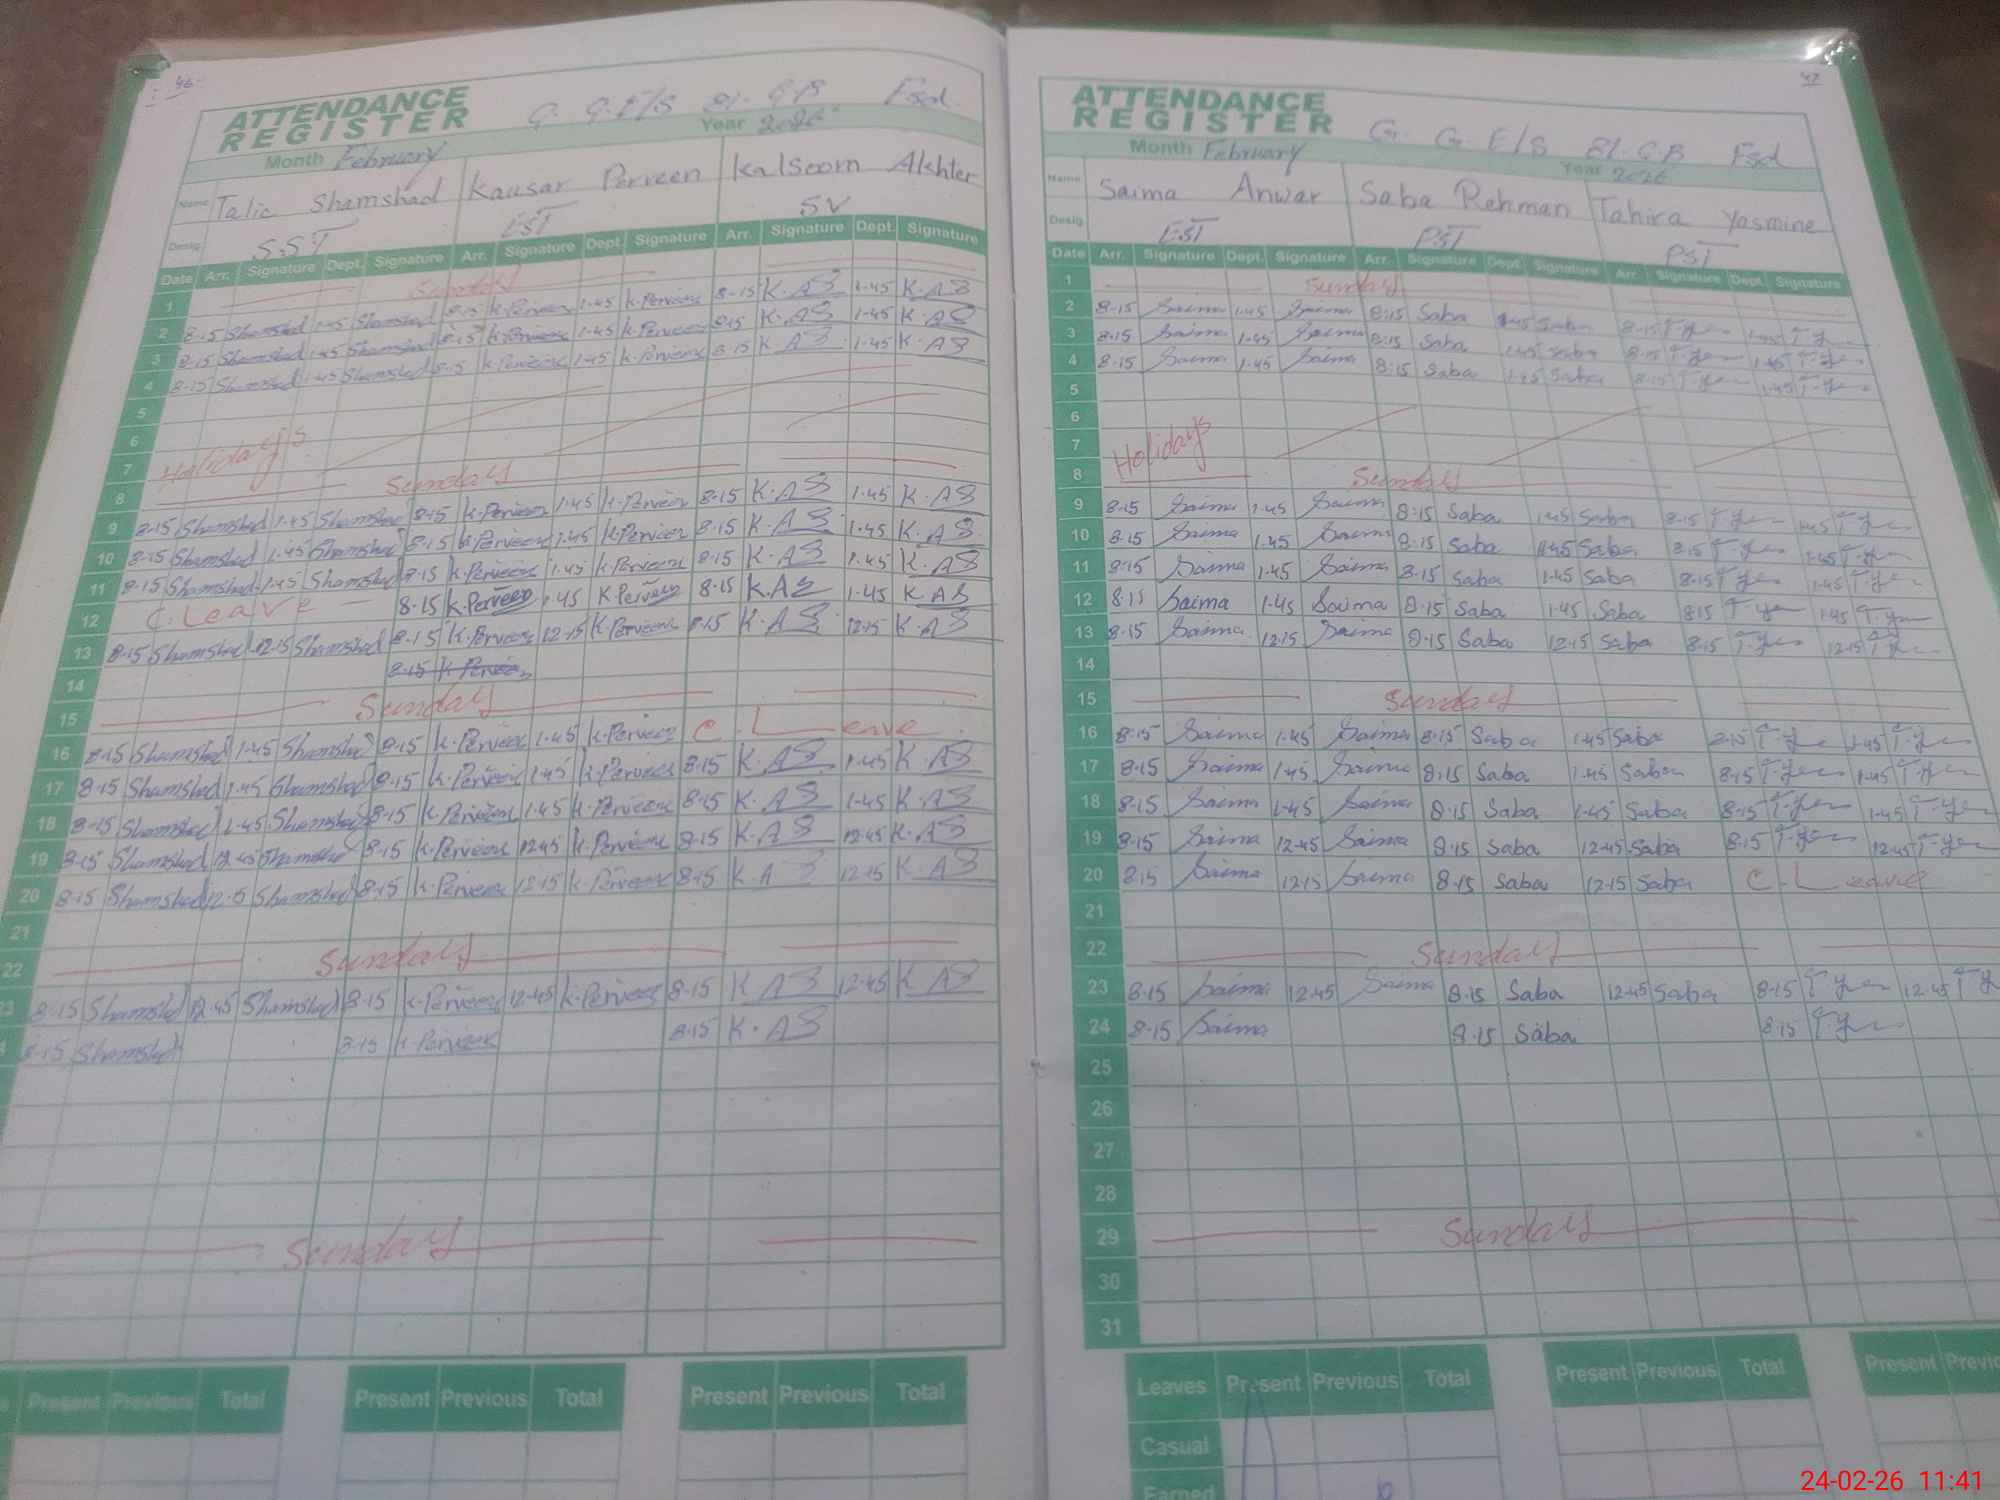 46
ATTENDANCE
REGISTER
G. G.E/S 81. G.B Fsd.
Month February Year 2026
Name Talic Shamshad Kausar Perveen Kalsoom Akhter
Desig. SST EST SV
Date Arr. Signature Dept. Signature Arr. Signature Dept. Signature Arr. Signature Dept. Signature
1 Sunday
2 8-15 Shamshad 1-45 Shamshad 8-15 K-Perveen 1-45 K-Perveen 8-15 K.AS 1-45 K.AS
3 8-15 Shamshad 1-45 Shamshad 8-15 K-Perveen 1-45 K-Perveen 8-15 K.AS 1-45 K.AS
4 8-15 Shamshad 1-45 Shamshad 8-15 K-Perveen 1-45 K-Perveen 8-15 K.AS 1-45 K AS
5
6
7 Holidays
8 Sunday
9 8-15 Shamshad 1-45 Shamshad 8-15 K-Perveen 1-45 K-Perveen 8-15 K.AS 1-45 K.AS
10 8-15 Shamshad 1-45 Shamshad 8-15 K-Perveen 1-45 K-Perveen 8-15 K.AS 1-45 K.AS
11 8-15 Shamshad 1-45 Shamshad 8-15 K-Perveen 1-45 K-Perveen 8-15 K.AS 1-45 K.AS
12 C. Leave 8-15 K-Perveen 1-45 K-Perveen 8-15 K.AS 1-45 K AS
13 8-15 Shamshad 12-15 Shamshad 8-15 K-Perveen 12-15 K-Perveen 8-15 K.AS 12-15 K.AS
14 8-15 K-Perveen
15 Sunday
16 8-15 Shamshad 1-45 Shamshad 8-15 K-Perveen 1-45 K-Perveen C. Leave
17 8-15 Shamshad 1-45 Shamshad 8-15 K-Perveen 1-45 K-Perveen 8-15 K.AS 1-45 K.AS
18 8-15 Shamshad 1-45 Shamshad 8-15 K-Perveen 1-45 K-Perveen 8-15 K.AS 1-45 K.AS
19 8-15 Shamshad 12-45 Shamshad 8-15 K-Perveen 12-45 K-Perveen 8-15 K.AS 12-45 K.AS
20 8-15 Shamshad Shamshad 8-15 K-Perveen 12-15 K-Perveen 8-15 K.AS 12-15 K.AS
21
22 Sunday
23 8-15 Shamshad 12-45 Shamshad 8-15 K-Perveen 12-45 K-Perveen 8-15 K AS 12-45 K AS
8-15 Shamshad 8-15 K-Perveen 8-15 K.AS
Sunday
Present Previous Total Present Previous Total Present Previous Total
47
ATTENDANCE
REGISTER
G. G. E/S 81. G.B Fsd
Month February Year 2026
Name Saima Anwar Saba Rehman Tahira Yasmine
Desig. EST PST PST
Date Arr. Signature Dept. Signature Arr. Signature Dept. Signature Arr. Signature Dept. Signature
1 Sunday
2 8-15 Saima 1-45 Saima 8:15 Saba 1-45 Saba 8-15 1-45
3 8-15 Saima 1-45 Saima 8:15 Saba 1-45 Saba 8-15 1-45
4 8-15 Saima 1-45 Saima 8:15 Saba 1-45 Saba 8-15 1-45
5
6
7 Holidays
8 Sunday
9 8-15 Saima 1-45 Saima 8:15 Saba 1-45 Saba 8-15 1-45
10 8-15 Saima 1-45 Saima 8-15 Saba 1-45 Saba 8-15 1-45
11 8-15 Saima 1-45 Saima 8-15 Saba 1-45 Saba 8-15 1-45
12 8-15 Saima 1-45 Saima 8-15 Saba 1-45 Saba 8-15 1-45
13 8-15 Saima 12-15 Saima 8-15 Saba 12-15 Saba 8-15 12-15
14
15 Sunday
16 8-15 Saima 1-45 Saima 8-15 Saba 1-45 Saba 8-15 1-45
17 8-15 Saima 1-45 Saima 8:15 Saba 1-45 Saba 8-15 1-45
18 8-15 Saima 1-45 Saima 8-15 Saba 1-45 Saba 8-15 1-45
19 8-15 Saima 12-45 Saima 8-15 Saba 12-45 Saba 8-15 12-45
20 8-15 Saima 12-15 Saima 8-15 Saba 12-15 Saba C. Leave
21
22 Sunday
23 8-15 Saima 12-45 Saima 8-15 Saba 12-45 Saba 8-15 12-45
24 8-15 Saima 8-15 Saba 8-15
25
26
27
28
29 Sunday
30
31
Leaves Present Previous Total Present Previous Total Present
Casual
Earned
24-02-26 11:41